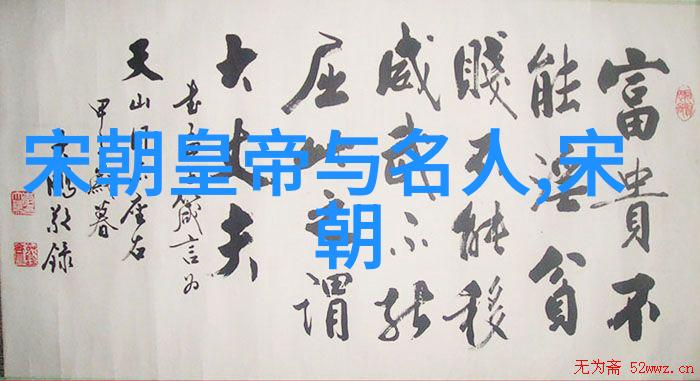 富貴不
能淫貧
賤不能移
威武不能
屈此之謂
大丈夫
箴言为
天山座右
甲暮
敬錄
宋朝皇帝与名人,宋
朝
无为斋 52wwz.cn